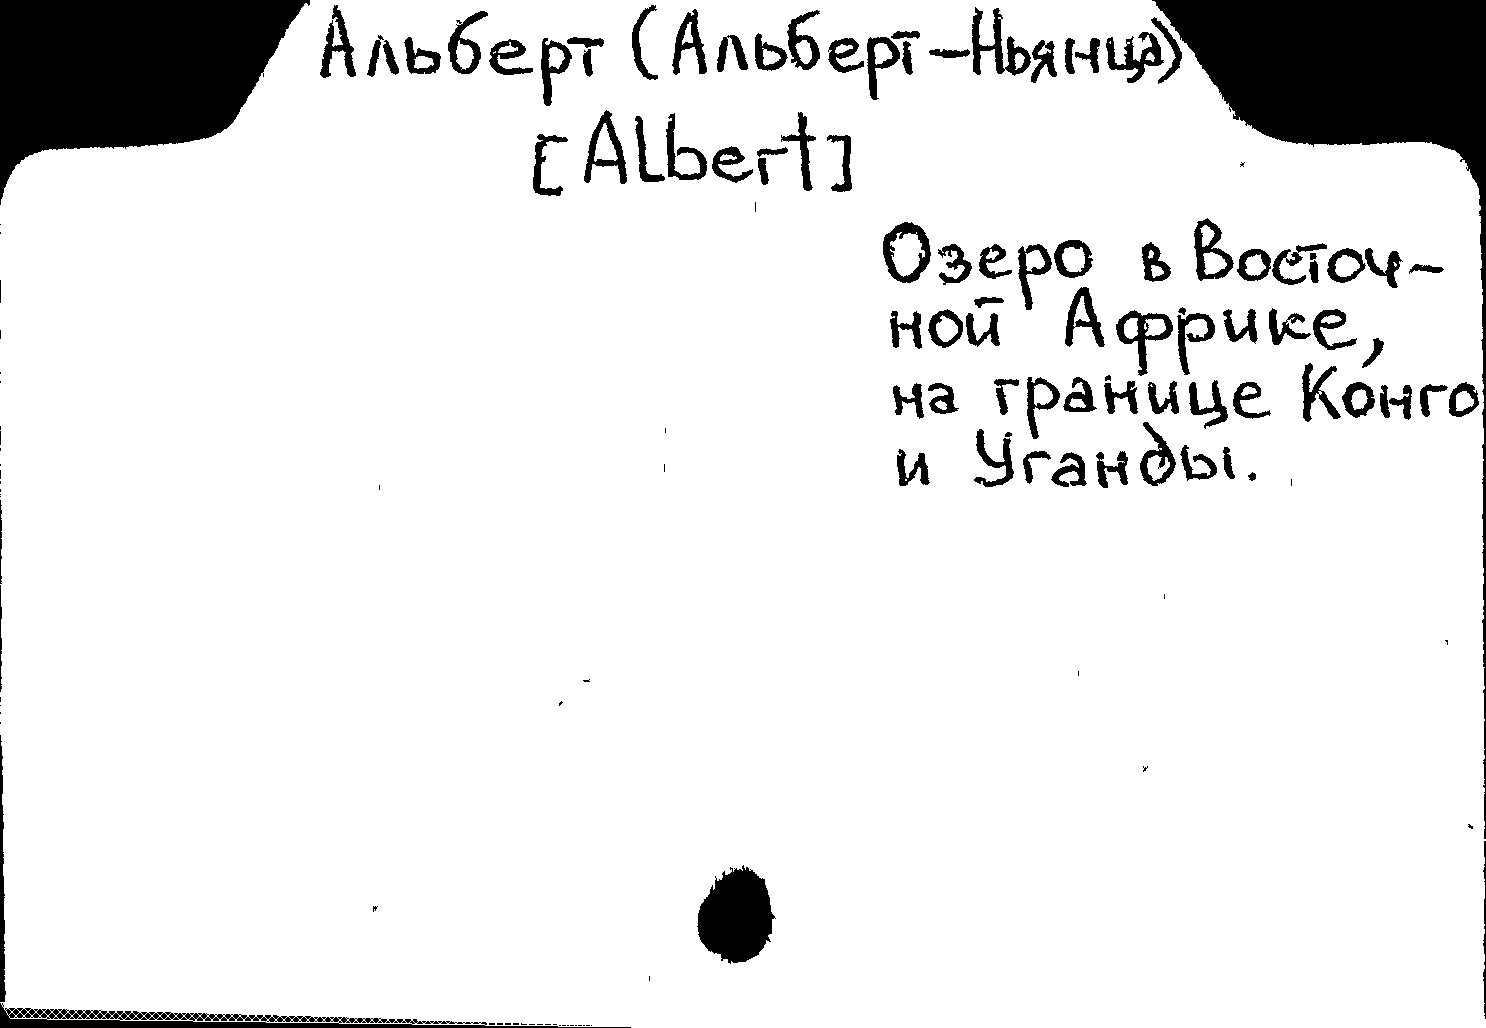 Альберт (Альберт-Ньянца)
[Albert]
Озеро в Восточ-
ной Африке,
на границе Конго
и Уганды.